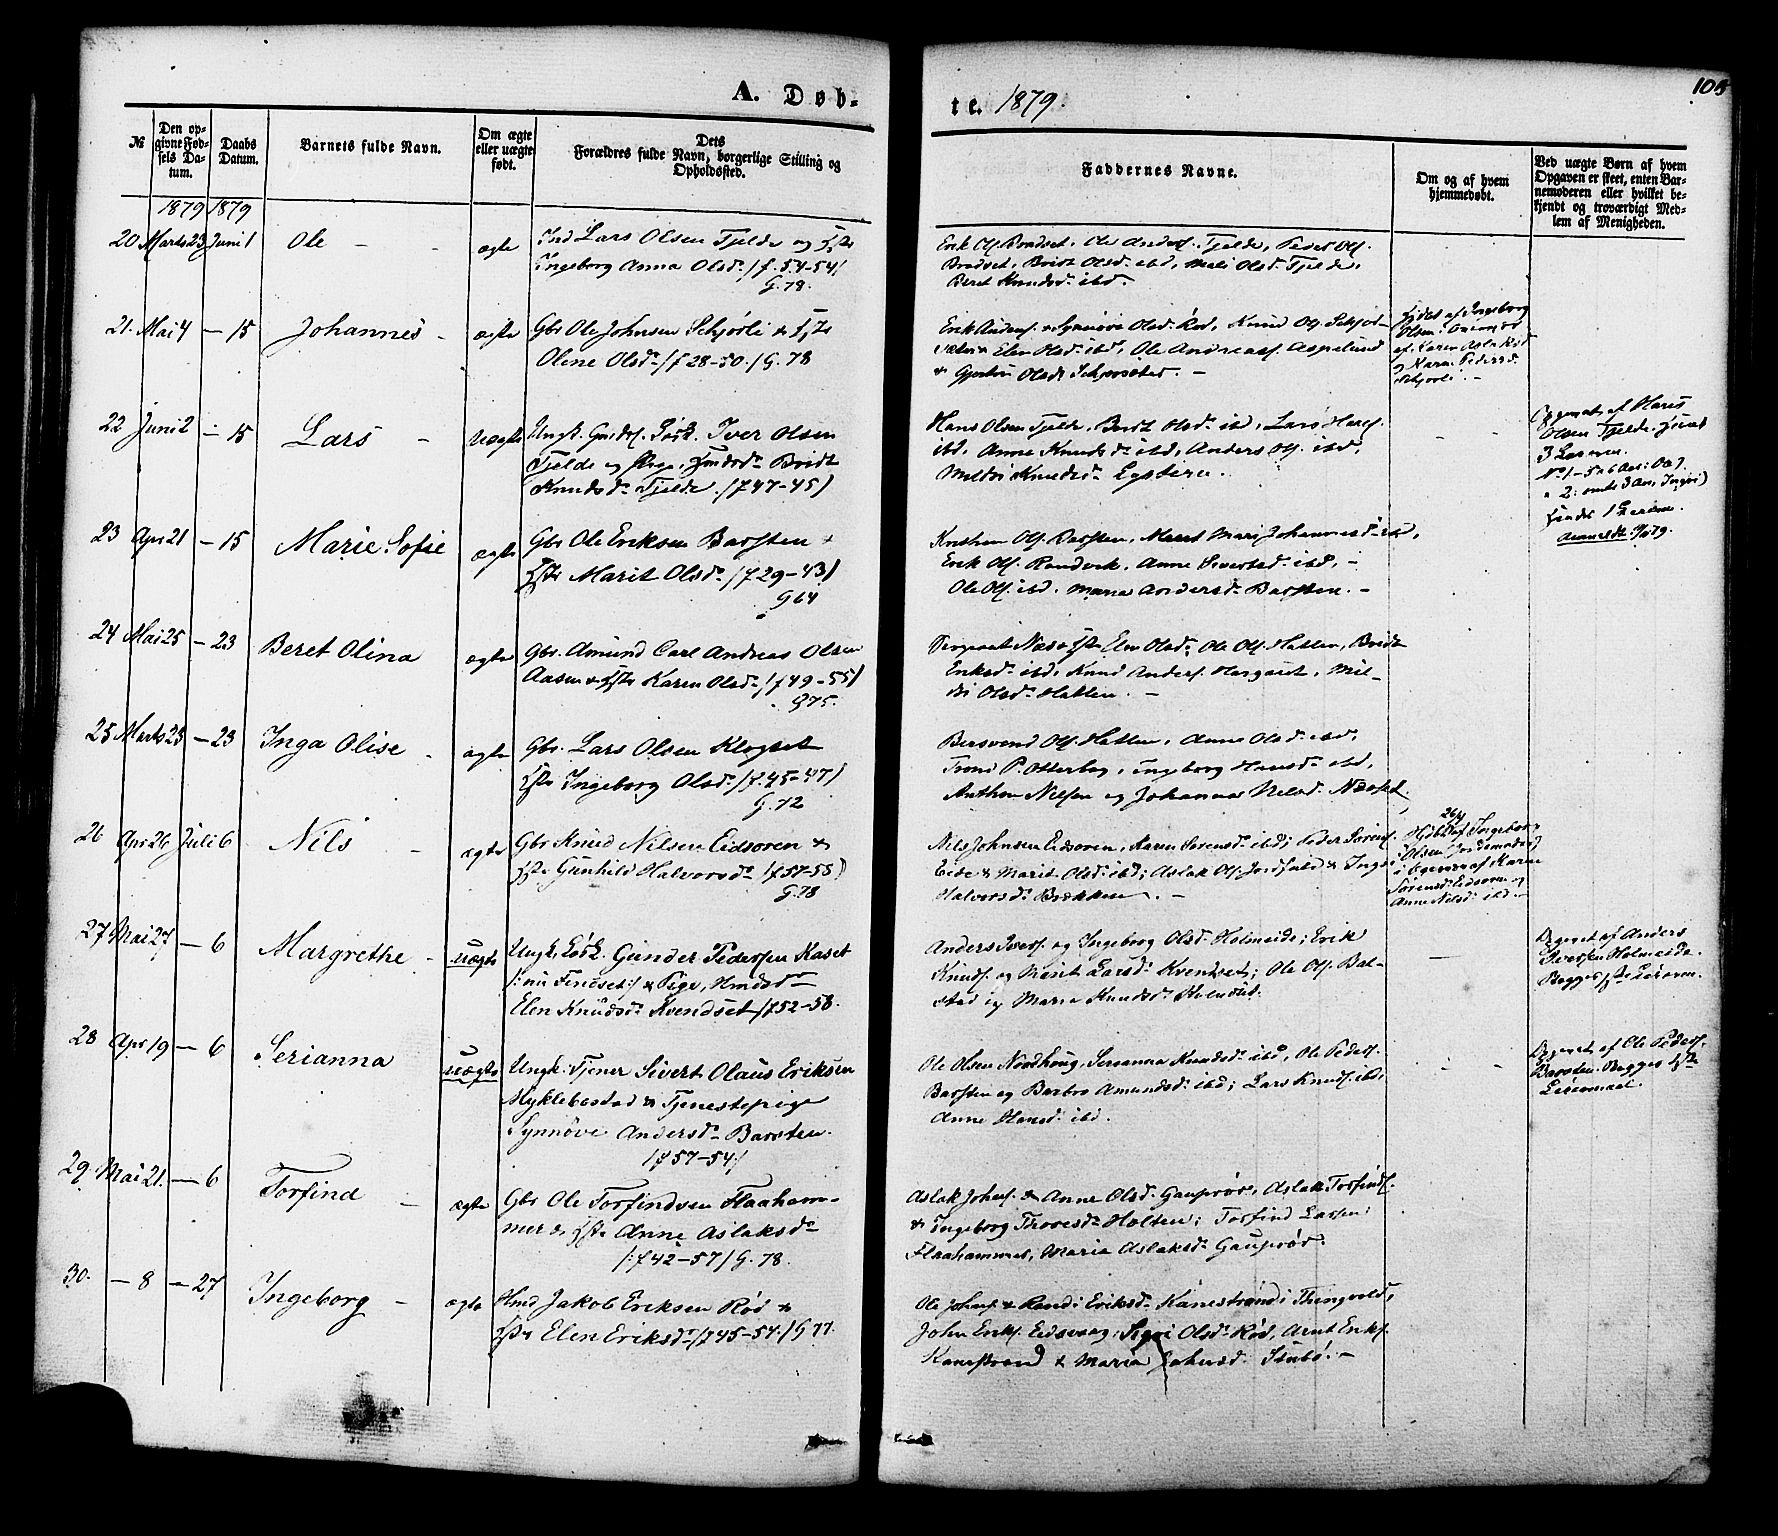 A. Døb-
te. 1879.
108
№
Den op-
givne Fød-
sels Da-
tum.
Daabs
Datum.
Barnets fulde Navn.
Om ægte
eller uægte
født.
Dets
Forældres fulde Navn, borgerlige Stilling og
Opholdssted.
Faddernes Navne.
Om og af hvem
hjemmedøbt.
Ved uægte Børn af hvem
Opgaven er skeet, enten Bar-
nemoderen eller hvilket be-
kjendt og troværdigt Med-
lem af Menigheden.
1879 1879
20 Marts 23 Juni 1 Ole - - ægte
Ind Lars Olsen Tjelde og Hstr
Ingeborg Anna Olsd. /f. 54-54/
G. 78.
Erik Ols. Bradset, Ole Anders. Tjelde, Peder Ols.
Bradset, Beret Olsd. ibd, Mali Olsd. Tjelde,
Beret Knudsd. ibd.
21. Mai 4 - 15 Johannes - ægte
Gbr Ole Johnsen Schjörli & Hstr
Olene Olsd. /f 28-50./ G. 78
Erik Anders. & Synnöve Olsd. Röd, Knud Ols. Schjör-
sæter & Elen Olsd. ibd, Ole Andreass. Aspelund
& Olsd. Schjørsæter. -
af Ingeborg
Olsen
af Karen Röd
og Karen Pedersd.
Schjörli. -
22 Juni 2 - 15 Lars - Uægte
Ungk. Iver Olsen
Tjelde og Pige, Brit
Knudsd. Tjelde. (f 47-45)
Hans Olsen Tjelde, Brit Olsd. ibd, Lars Hans.
ibd, Anne Knudsd. ibd, Anders Ols. ibd,
Knudsd.
- -
Opgivet af Hans
Olsen Tjelde,
3 Leierm.
23 Apr 21 - 15 Marie Sofie ægte
Gbr Ole Eriksen Barsten &
Hstr Marit Olsd. (f 29-43)
G 64
Ols. Barsten, Marit Johannesd. ibd,
Erik Ols. Randvik, Anne Sivertsd. ibd, -
Ole Ols. ibd. Marie Andersd. Barsten. -
24 Mai 25 - 23 Beret Olina ægte
Gbr. Amund Carl Andreas Olsen
Aasen & Hstr Karen Olsd. /f 49-55)
G 75.
Næs & Hstr Elen Olsd., Ole Ols. Hatlen, Brit
Eriksd. ibd, Knud Anders. Horgaut, Mil-
Olsd. Hatlen. -
25 Marts 23 - 23 Inga Olise - ægte
Gbr. Lars Olsen Klogset
Hstr Ingeborg Olsd. (f. 45-47)
G. 72
Bersvend Ols. Hatlen, Anne Olsd. ibd,
Trond P. Otterbeg, Ingeborg Hansd. ibd,
Anthon Nilsen og Johanna Nilsd. Næsset.
26 Apr 26 Juli 6 Nils - ægte
Gbr Knud Nilsen Eidsören &
Hstr Gunhild Halvorsd. /f 57-55)
G. 78
Nils Johnsen Eidsören, Karen Sörensd. ibd; Peder Sörens.
Eide & Marit Olsd. ibd; Aslak Ols. Jordfald &
Halvorsd. Brekken. -
26/4
Hjdbt af Ingeborg
Olsen Jordemoder
i Overvær af Karen
Sörensd. Eidsören og
Anne Nilsd. ibd. -
27 Mai 27 - 6 Margrethe - uægte
Ungk. Gunder Pedersen Raset
/: nu Findset:/ & Pige, Hmdsd.
Elen Knudsd. Kvendset /f 52-58.
Anders Ivers. og Ingeborg Olsd. Holmeide; Erik
Knuds. og Marit Larsd. Kvendset; Ole Ols. Bal-
stad og Maria Knudsd.
-
Opgivet af Anders
Iversen Holmeide.
Begges 1ste Leierm.
28 Apr 19 - 6 Serianna uægte
Ungk. Tjener Sivert Olaus Eriksen
Myklebostad & Tjenestepige
Synnöve Andersd. Barsten.
/f 57-54/
Ole Olsen Nordhoug, Serianna Knudsd. ibd, Ole Peders.
Barsten og Barbro Amundsd. ibd; Lars Knuds. ibd,
Anne Hansd. ibd.
- -
Opgivet af Ole Peders.
Barsten. Begges 1ste
Leiermaal.
29. Mai 21. - 6 Torfind - ægte
Gbr Ole Torfindsen Flaaham-
mer & Hstr Anne Aslaksd.
/: f 42-57/ G. 78.
Aslak Johns. & Anne Olsd. Gauprör, Aslak Torfinds.
& Ingeborg Holten; Torfind Larsen
Flaahammer, Maria Aslaksd. Gauprör.
30. - 8 - 27 Ingeborg - ægte
Hmd Jakob Eriksen Röd &
Hstr Elen Eriksd. /f 45-54./ G 77.
Ole Johns. & Randi Eriksd. Kanestrand i Thingvold,
John Eriks. Eidsvaag, Sigri Olsd. Röd, Arnt Eriks.
Kanestrand & Maria Johnsd. Stubö. -